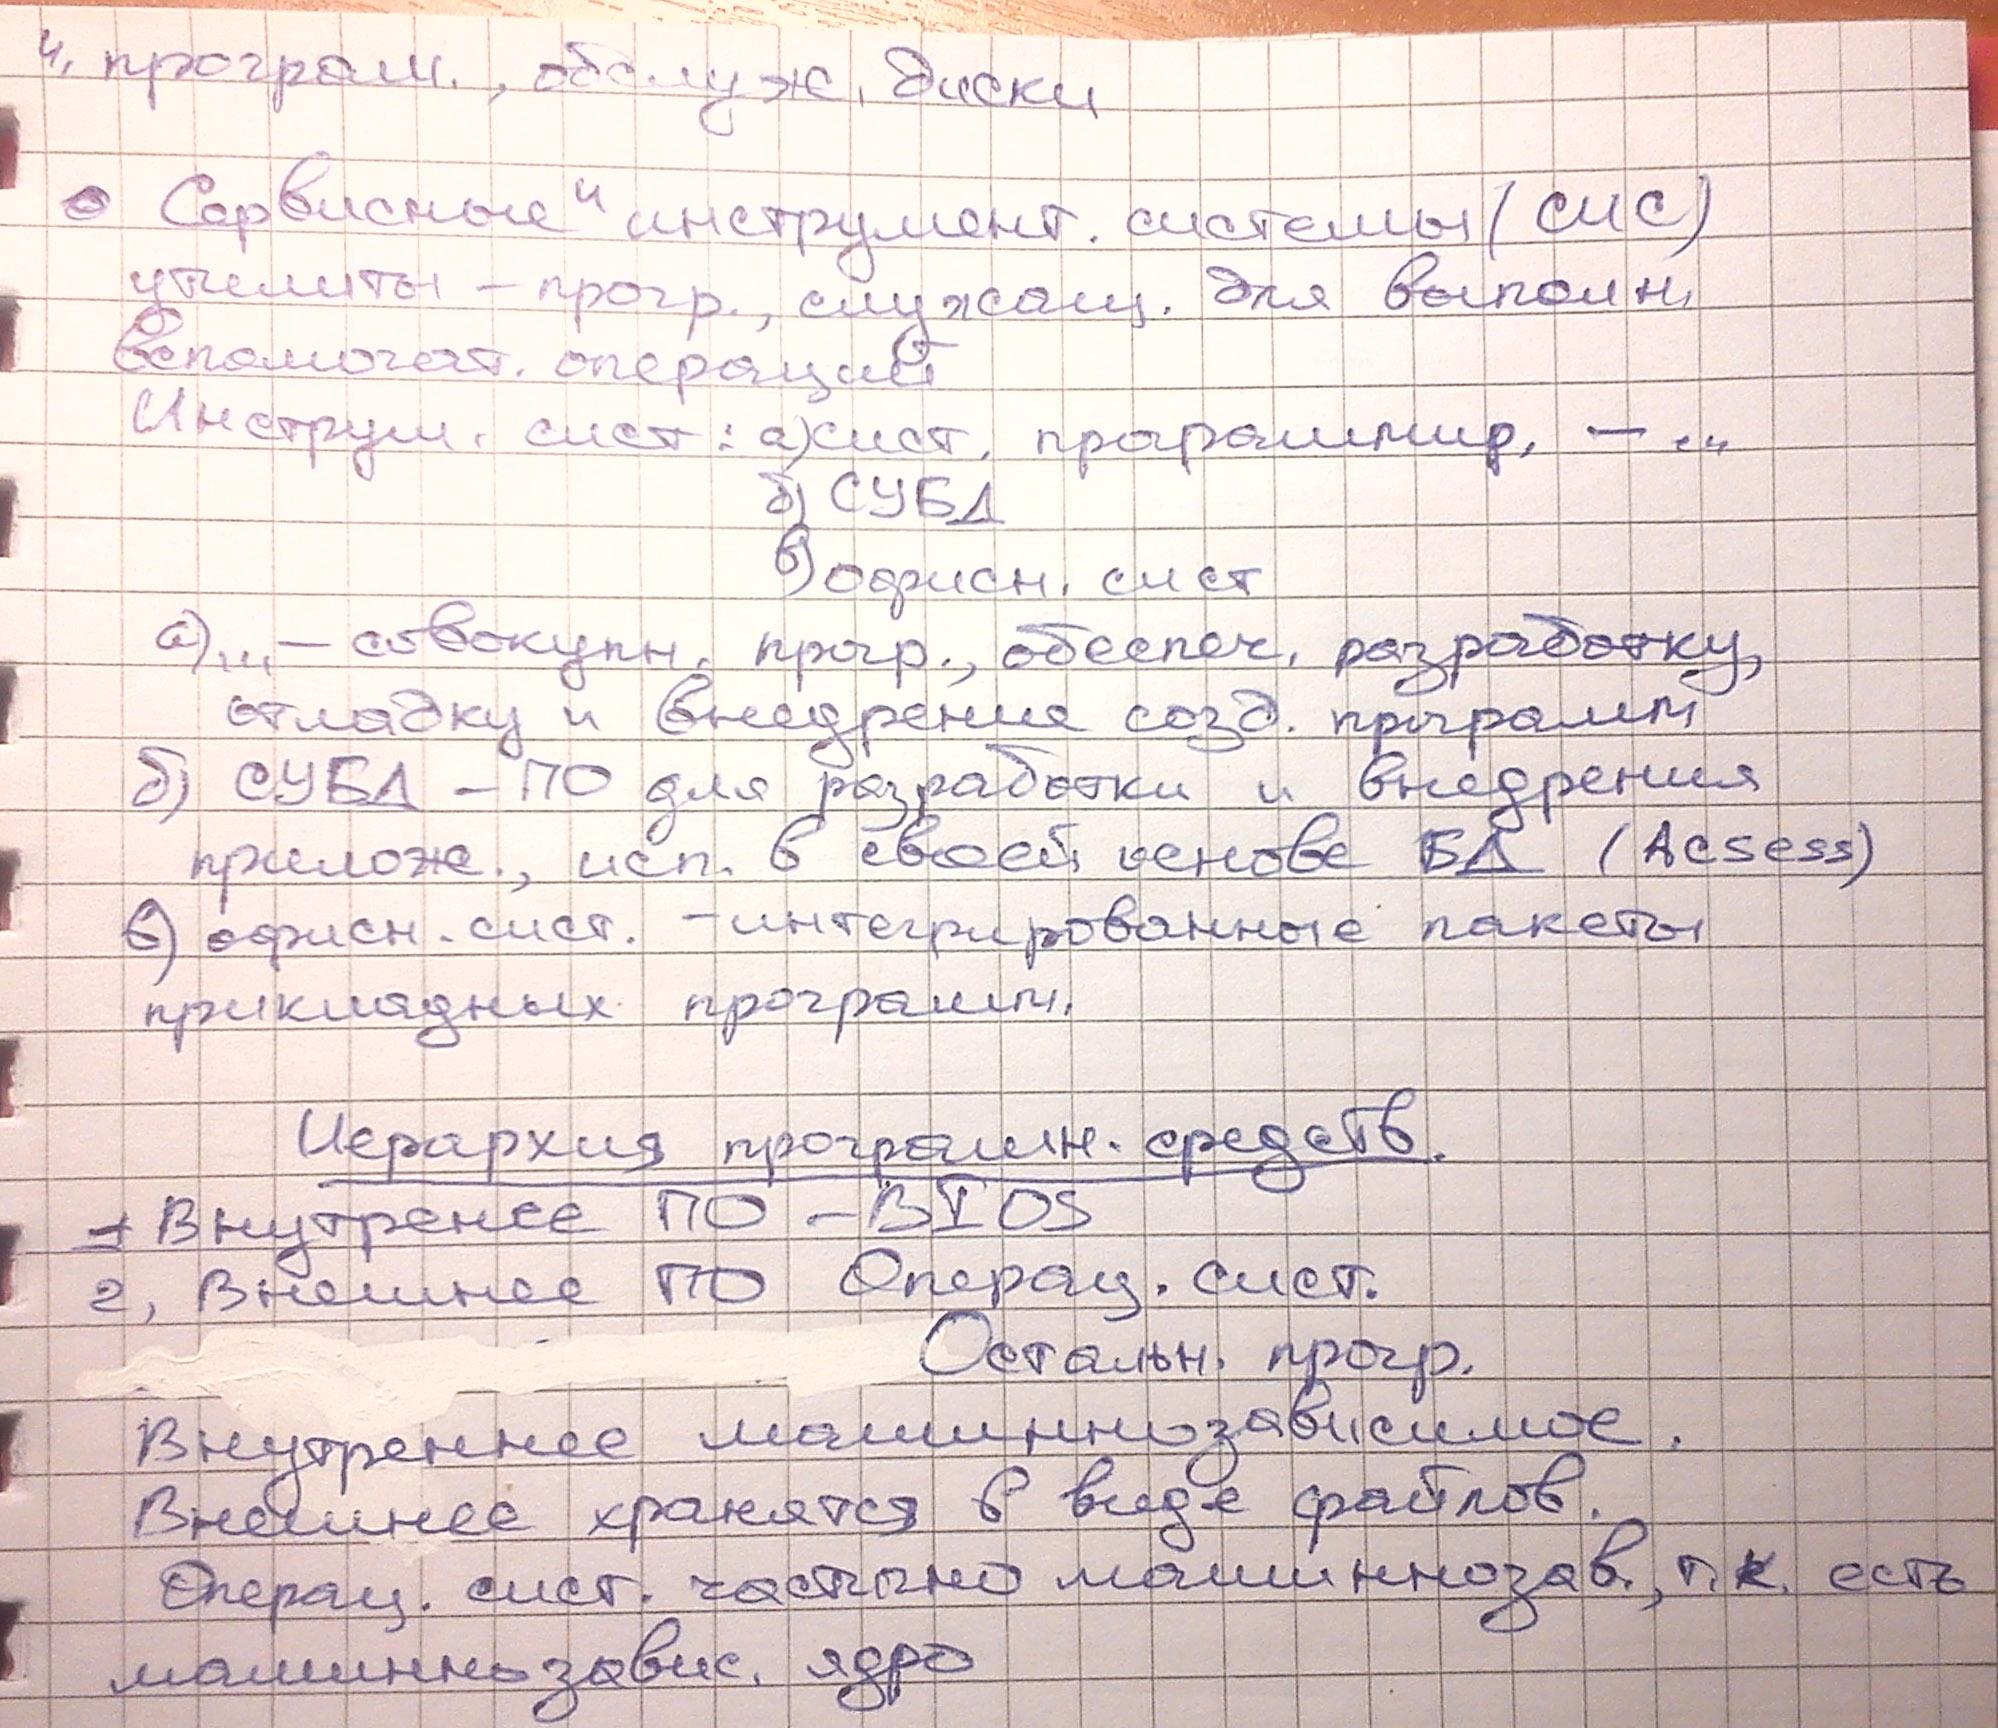 4. програм., обслуж. диски
Сервисные и инструмент. системы (СИС)
утилиты – прогр., служащ. для выполн.
вспомогат. операций
Инструм. сист: а) сист. программир. – „„
б) СУБД
в) офисн. сист
а) „„ – совокупн. прогр., обеспеч. разработку,
отладку и внедрение созд. программ
б) СУБД – ПО для разработки и внедрения
прилож., исп. в своей основе БД (Acsess)
в) офисн. сист. – интегрированные пакеты
прикладных программ.
Иерархия программн. средств.
1 Внутренее ПО – BIOS
2, Внешнее ПО Операц. сист.
Остальн. прогр.
Внутреннее машиннозависимое.
Внешнее хранятся в виде файлов.
Операц. сист. частично машиннозав., т.к. есть
машиннозавис. ядро